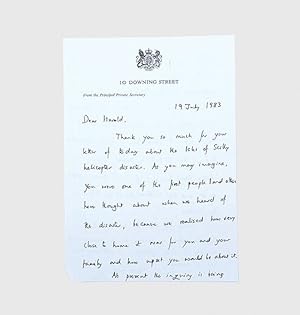 10 DOWNING STREET
From the Principal Private Secretary
19 July 1983
Dear Harold,
Thank you so much for your
letter of today about the Isles of Scilly
helicopter disaster. As you may imagine,
you were one of the first people
have thought about when we heard of
the disaster, because we realised how very
close to home it was for you and your
family and how upset you would be about it.
At present the inquiry is being